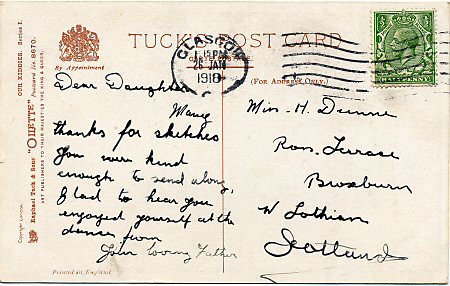 TUCK'S POST CARD
By Appointment
OUR KIDDIES. Series I.
"OILETTE" Postcard No 8670.
Raphael Tuck & Sons
ART PUBLISHERS TO THEIR MAJESTIES THE KING & QUEEN.
Copyright London.
GLASGOW
1.15PM
25 JAN
1918
HALFPENNY
(FOR ADDRESS ONLY.)
Dear Daughter
Many
thanks for sketches
you were kind
enough to send along,
Glad to hear you
enjoyed yourself at the
dance from
Your Loving Father
Miss H. Dunne
Ron. Terase
Broxburn
W Lothian
Scotland
Printed in England